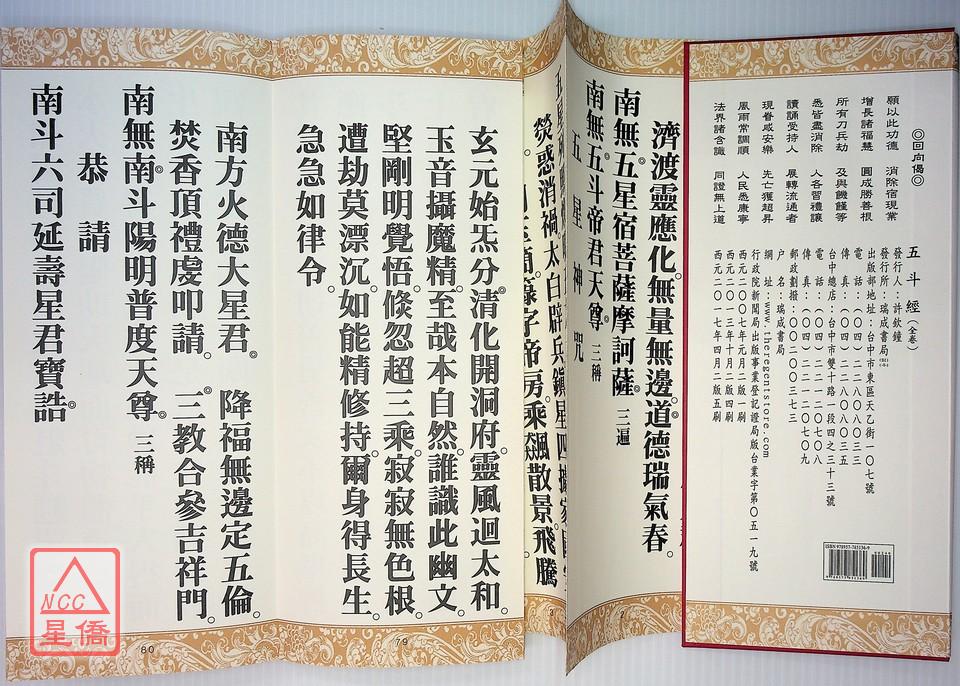 ◎回向偈◎
願以此功德　消除宿現業
增長諸福慧　圓成勝善根
所有刀兵劫　及與饑饉等
悉皆盡消除　人各習禮讓
讀誦受持人　展轉流通者
現眷咸安樂　先亡獲超昇
風雨常調順　人民悉康寧
法界諸含識　同證無上道
五斗經(全卷)
發行人：許欽鐘
發行所：瑞成書局
出版部地址：台中市東區天乙街一〇七號
電話：(〇四)二二一二〇七〇八
台中總店：台中市雙十路一段四之三十三號
郵政劃撥：〇〇二〇〇三七三
戶名：瑞成書局
網址：www.theregentstore.com
行政院新聞局出版事業登記證局版台業字第〇五一九號
西元二〇〇七年元月二版一刷
西元二〇一三年十月二版四刷
西元二〇一七年四月二版五刷
濟渡靈應化。無量無邊。道德瑞氣春。
南無。五星宿菩薩摩訶薩。三遍
南無。五斗帝君天尊。三稱
五星神咒
熒惑消禍。太白辟兵。鎮星四據。家國
帝房。乘飆散景。飛騰
玄元始炁分。清化開洞府。靈風迴太和。
玉音攝魔精。至哉本自然。誰識此幽文。
堅剛明覺悟。倏忽超三乘。寂寂無色根。
遭劫莫漂沉。如能精修持。爾身得長生。
急急如律令。
79
南方火德大星君。　降福無邊定五倫。
焚香頂禮虔叩請。　三教合參吉祥門。
南無。南斗陽明普度天尊。三稱
恭請
南斗六司延壽星君寶誥。
80
NCC
星僑